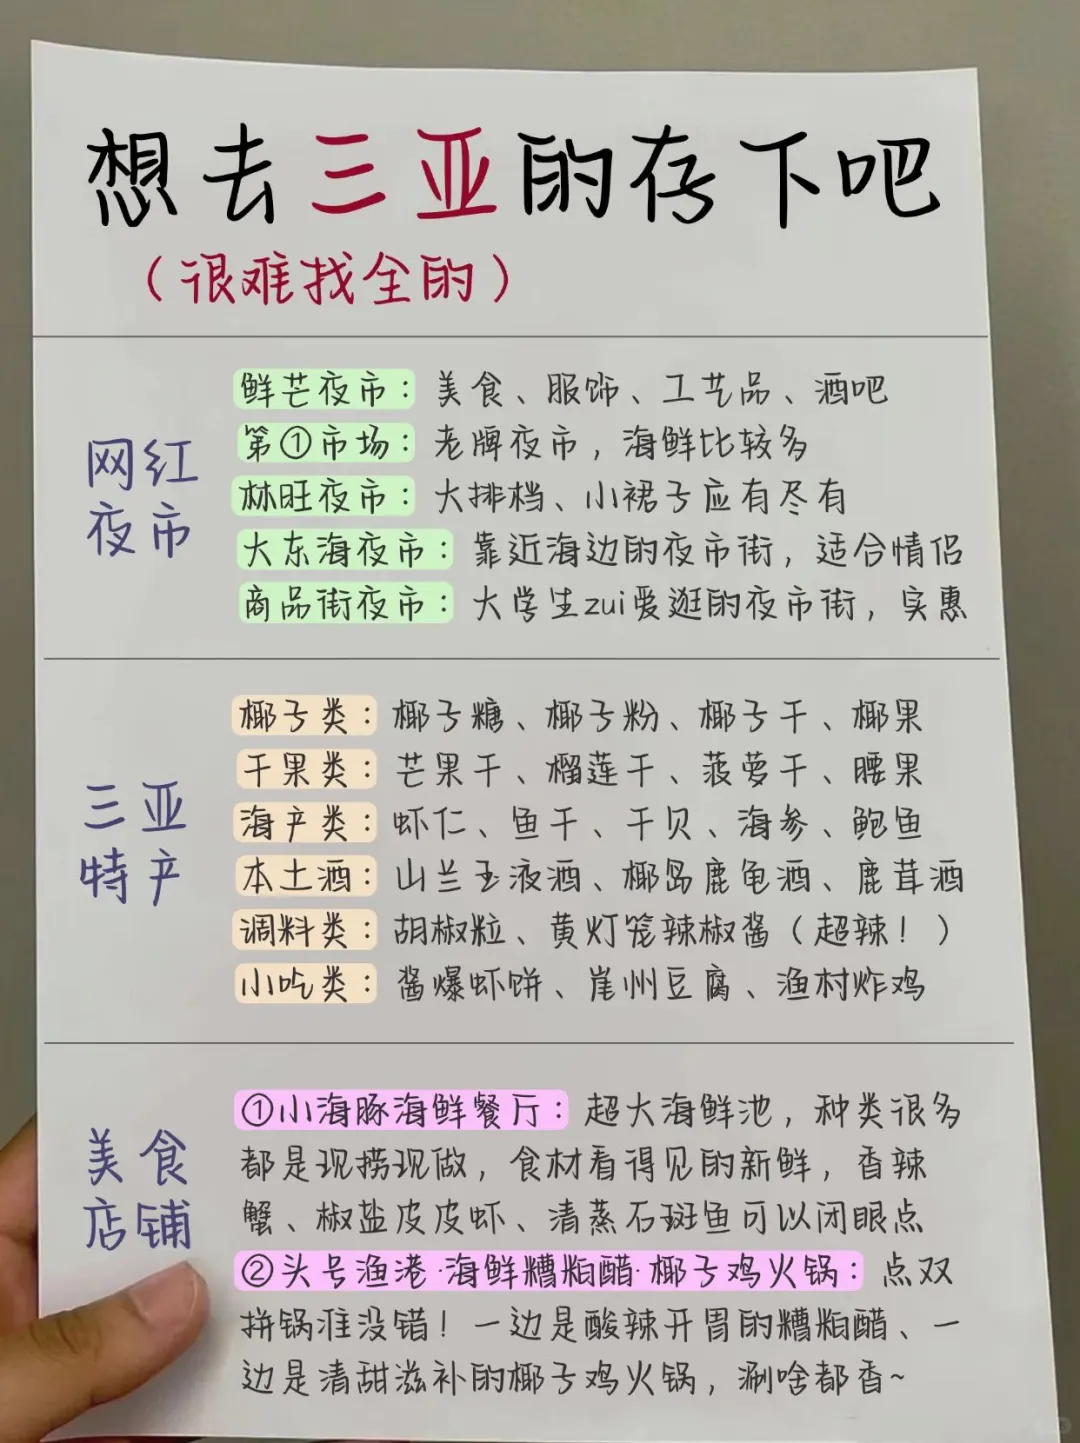 想去三亚的存下吧
（很难找全的）
网红夜市
鲜芒夜市：美食、服饰、工艺品、酒吧
第①市场：老牌夜市，海鲜比较多
林旺夜市：大排档、小裙子应有尽有
大东海夜市：靠近海边的夜市街，适合情侣
商品街夜市：大学生zui爱逛的夜市街，实惠
三亚特产
椰子类：椰子糖、椰子粉、椰子干、椰果
干果类：芒果干、榴莲干、菠萝干、腰果
海产类：虾仁、鱼干、干贝、海参、鲍鱼
本土酒：山兰玉液酒、椰岛鹿龟酒、鹿茸酒
调料类：胡椒粒、黄灯笼辣椒酱（超辣！）
小吃类：酱爆虾饼、崖州豆腐、渔村炸鸡
美食店铺
①小海豚海鲜餐厅：超大海鲜池，种类很多
都是现捞现做，食材看得见的新鲜，香辣
蟹、椒盐皮皮虾、清蒸石斑鱼可以闭眼点
②头号渔港·海鲜糟粕醋·椰子鸡火锅：点双
拼锅准没错！一边是酸辣开胃的糟粕醋、一
边是清甜滋补的椰子鸡火锅，涮啥都香~